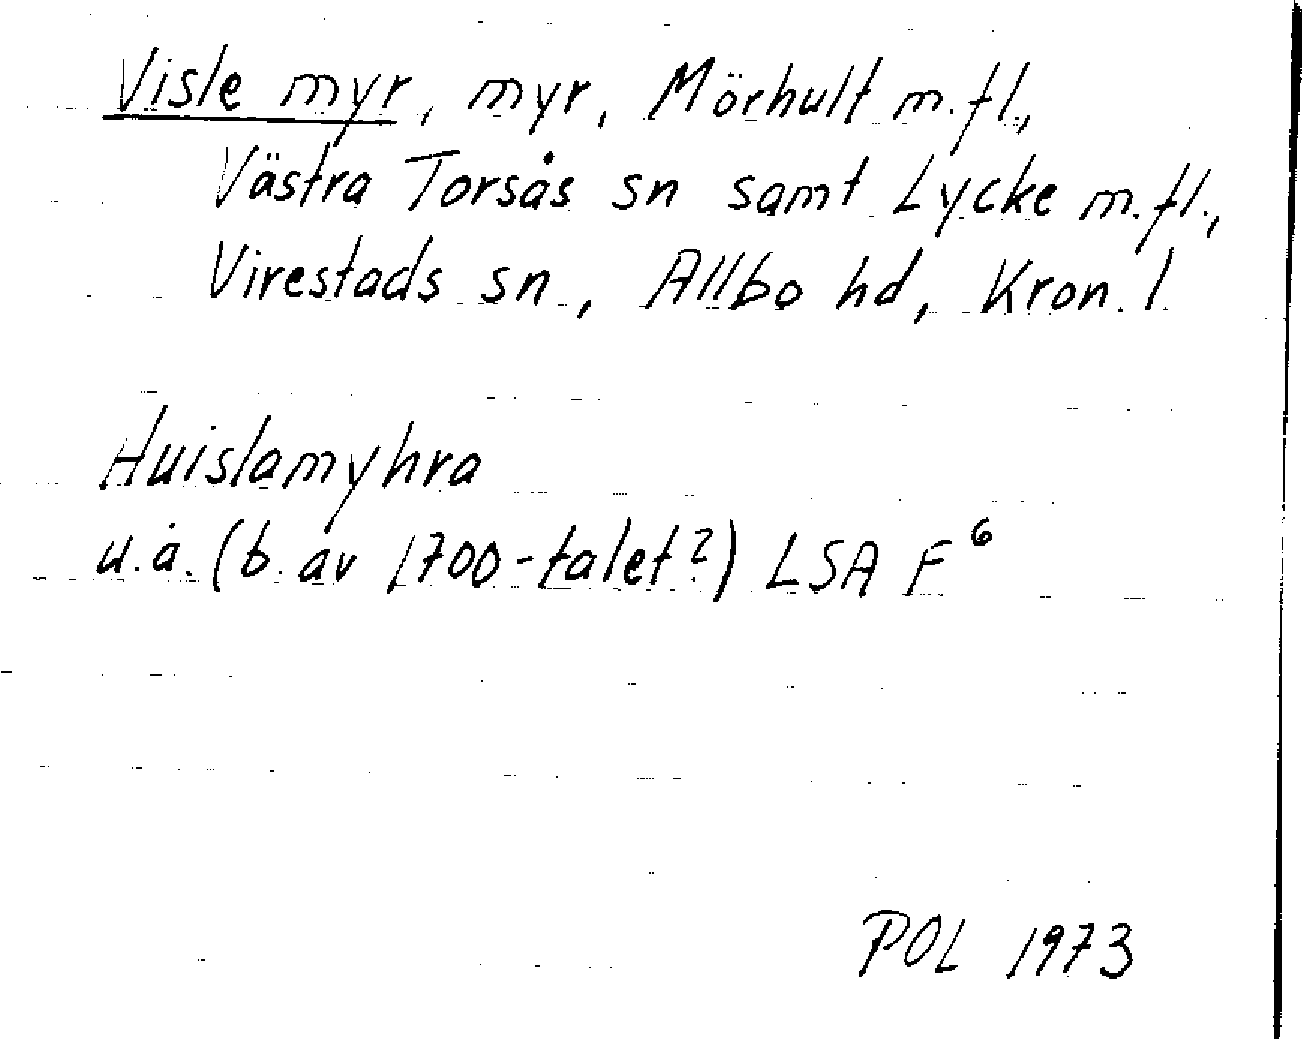 Visle myr, myr, Mörhult m.fl.,
Västra Torsås sn samt Lycke m.fl.,
Virestads sn, Allbo hd, Kron. l
Huislamyhra
u.å. (b. av 1700-talet?) LSA F⁶
POL 1973